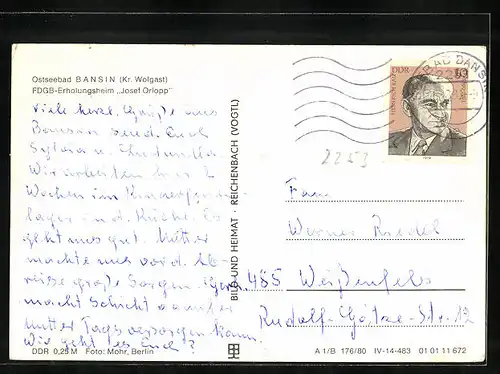 Ostseebad BANSIN (Kr. Wolgast)
FDGB-Erholungsheim „Josef Orlopp"
Viele herzl. Grüße aus
Bansin send. Euch
Sylvia u.
Wir arbeiten hier 2
Wochen im Kinderferien-
lager in d. Küche. Es
geht uns gut. Mutter
machte uns vor d. Ab-
reise große Sorgen.
macht Schicht
Mutter Tags versorgen kann.
Wie geht es Euch?
DDR 0,25 M Foto: Mohr, Berlin
BILD UND HEIMAT · REICHENBACH (VOGTL)
DDR
BAD BANSIN
2253
Fam
Werner Riedel
485 Weißenfels
Rudolf-Götze-Str. 12
A 1/B 176/80 IV-14-483 01 01 11 672